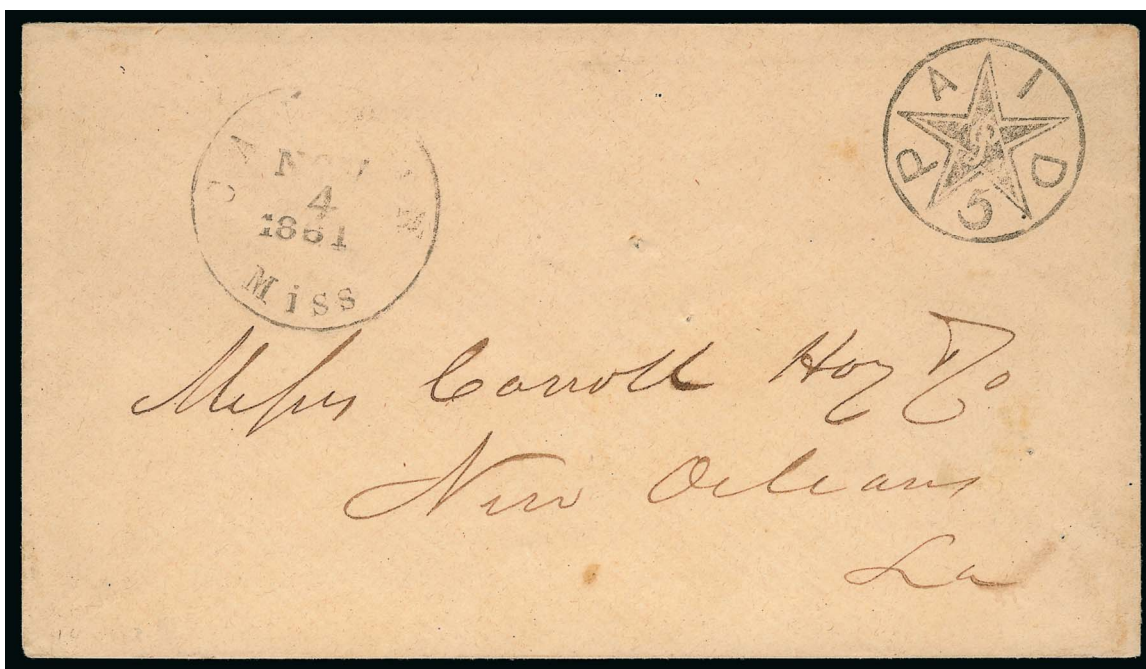 NOV
4
1861
Miss
PAID
5
Messrs Carroll Hoy & Co
New Orleans
La